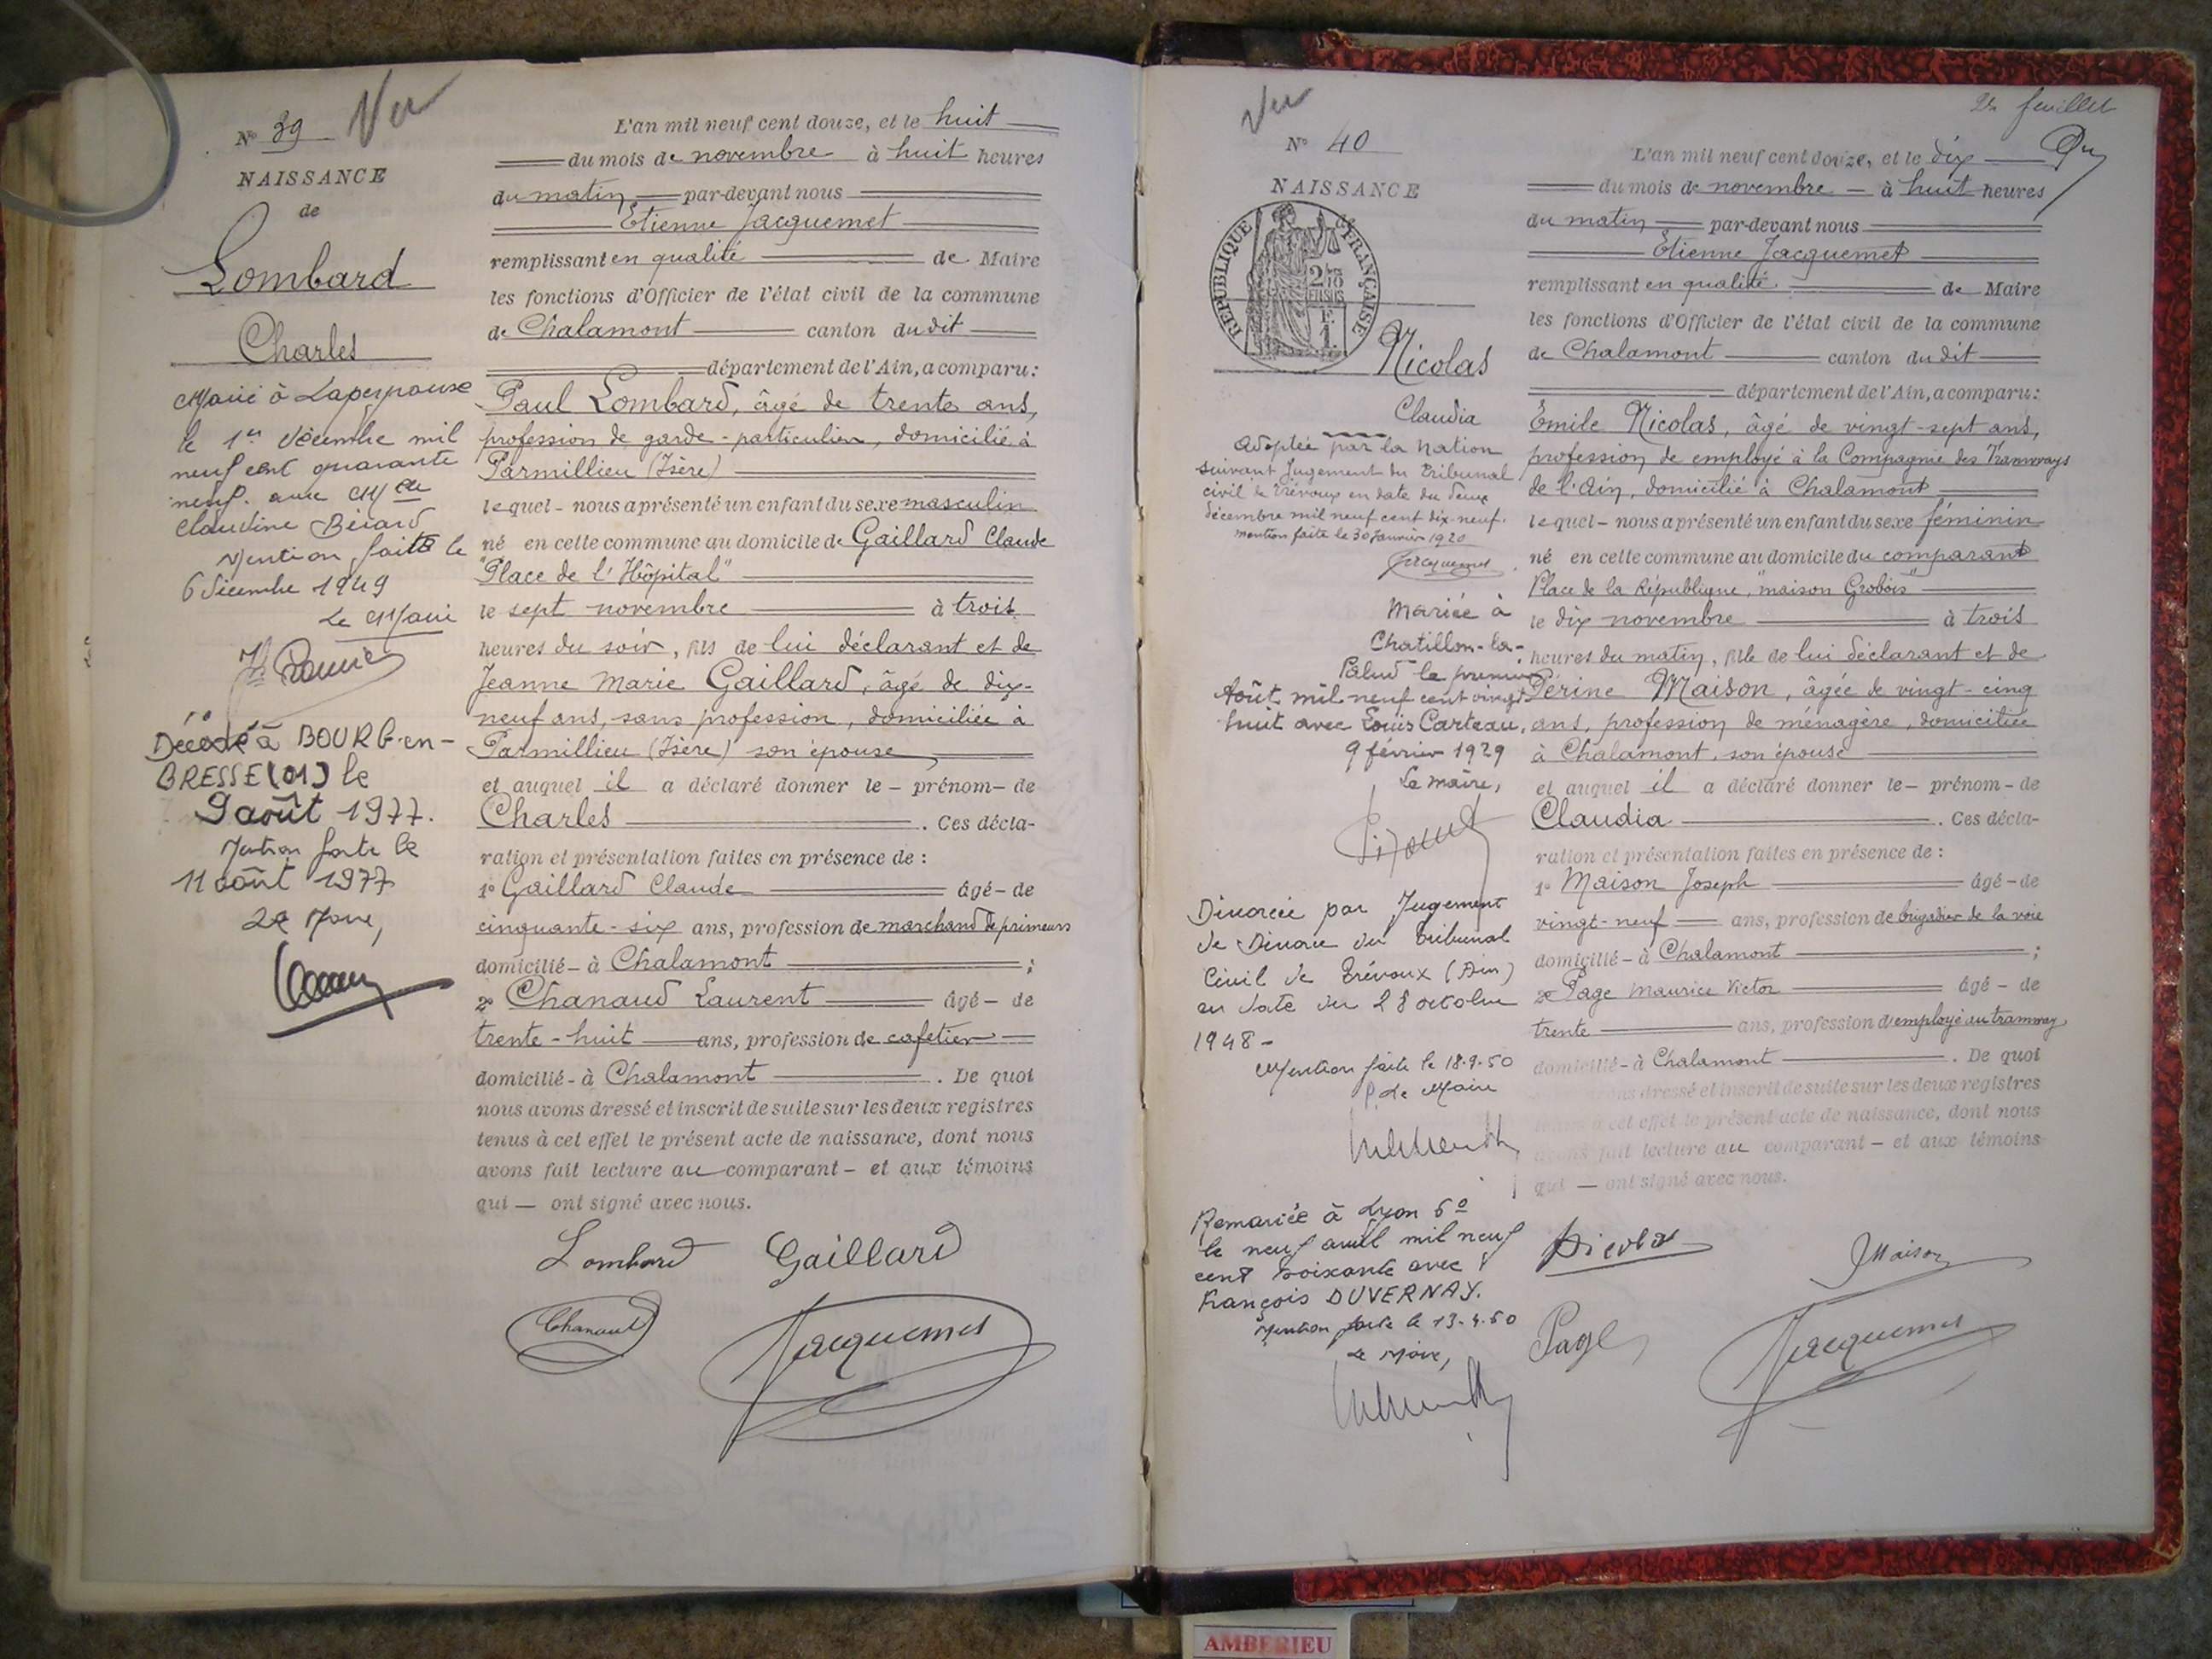 Vu
N° 39
NAISSANCE
de
Lombard
Charles
Marié à Lapeyrouse
le 1er décembre mil
neuf cent quarante
neuf. avec Melle
Claudine Bérard
Mention faite le
6 décembre 1949
Le Maire
Décédé à BOURG-en-
BRESSE (01) le
9 août 1977.
Mention faite le
11 août 1977
Le Maire,
L'an mil neuf cent douze, et le huit
du mois de novembre à huit heures
du matin par-devant nous
Etienne Jacquemet
remplissant en qualité de Maire
les fonctions d'Officier de l'état civil de la commune
de Chalamont canton du dit
département de l'Ain, a comparu:
Paul Lombard, âgé de trente ans,
profession de garde-particulier, domicilié à
Parmillieu (Isère)
lequel - nous a présenté un enfant du sexe masculin
né en cette commune au domicile de Gaillard Claude
"Place de l'Hôpital"
le sept novembre à trois
heures du soir, fils de lui déclarant et de
Jeanne Marie Gaillard, âgé de dix-
neuf ans, sans profession, domiciliée à
Parmillieu (Isère) son épouse
et auquel il a déclaré donner le - prénom - de
Charles . Ces décla-
ration et présentation faites en présence de :
1° Gaillard Claude âgé - de
cinquante-six ans, profession de marchand de primeurs
domicilié - à Chalamont ;
2° Chanaud Laurent âgé - de
trente-huit ans, profession de cafetier
domicilié - à Chalamont . De quoi
nous avons dressé et inscrit de suite sur les deux registres
tenus à cet effet le présent acte de naissance, dont nous
avons fait lecture au comparant - et aux témoins
qui — ont signé avec nous.
Lombard Gaillard
Chanaud Jacquemet
Vu
N° 40
NAISSANCE
de
REPUBLIQUE FRANÇAISE
Nicolas
Claudia
Adoptée par la Nation
suivant Jugement du Tribunal
civil de Trévoux en date du deux
décembre mil neuf cent dix-neuf.
mention faite le 30 Janvier 1920
Jacquemet
Mariée à
Chatillon-la-
Palud le premier
Août mil neuf cent vingt
huit avec Louis Carteau,
9 février 1929
Le maire,
Divorcée par Jugement
de Divorce du Tribunal
Civil de Trévoux (Ain)
en date du 28 octobre
1948 -
Mention faite le 18-9-50
P. le Maire
Remariée à Lyon 6e
le neuf avril mil neuf
cent soixante avec
François DUVERNAY.
Mention faite le 13-4-60
Le Maire,
feuillet
L'an mil neuf cent douze, et le dix
du mois de novembre — à huit heures
du matin par-devant nous
Etienne Jacquemet
remplissant en qualité de Maire
les fonctions d'Officier de l'état civil de la commune
de Chalamont canton du dit
département de l'Ain, a comparu:
Emile Nicolas, âgé de vingt-sept ans,
profession de employé à la Compagnie des Tramways
de l'Ain, domicilié à Chalamont
lequel - nous a présenté un enfant du sexe féminin
né en cette commune au domicile du comparant
Place de la République, "maison Grobois"
le dix novembre à trois
heures du matin, fille de lui déclarant et de
Périne Maison, âgée de vingt-cinq
ans, profession de ménagère, domiciliée
à Chalamont, son épouse
et auquel il a déclaré donner le - prénom - de
Claudia . Ces décla-
ration et présentation faites en présence de :
1° Maison Joseph âgé - de
vingt-neuf ans, profession de brigadier de la voie
domicilié - à Chalamont ;
2° Page Maurice Victor âgé - de
trente ans, profession d'employé au tramway
domicilié - à Chalamont . De quoi
nous avons dressé et inscrit de suite sur les deux registres
tenus à cet effet le présent acte de naissance, dont nous
avons fait lecture au comparant - et aux témoins
qui — ont signé avec nous.
Nicolas Maison
Page Jacquemet
AMBERIEU